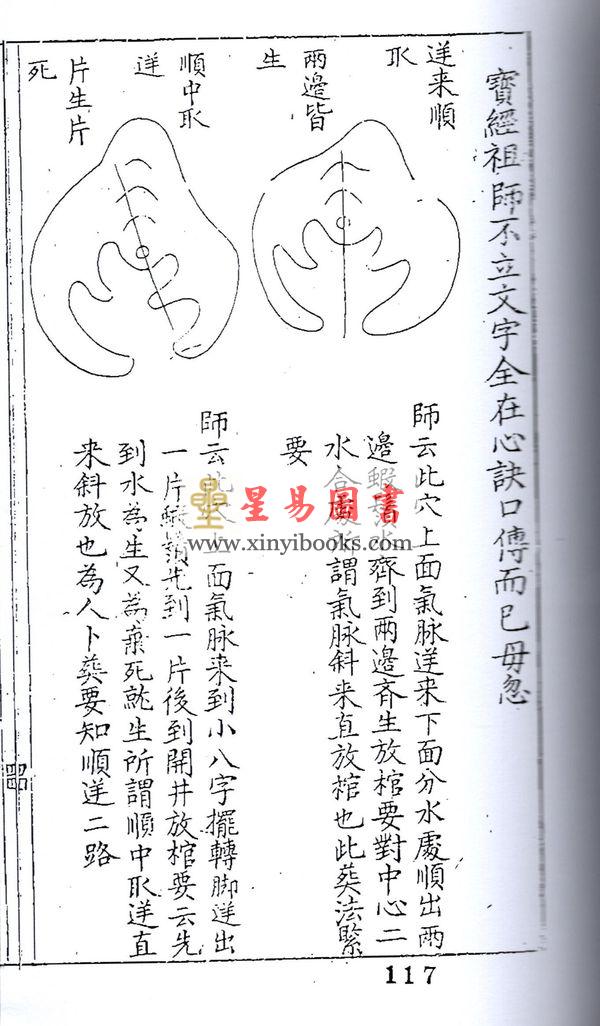 寶經祖師不立文字全在心訣口傳而已毋忽
逆来順
取
兩邉皆
生
師云此穴上面氣脉逆来下面分水處順出兩
邉蝦鬚水齊到兩邉斉生放棺要對中心二
水合處所謂氣脉斜来直放棺也此葬法緊
要
順中取
逆
片生片
死
師云面氣脉来到小八字擺轉脚逆出
一片蝦鬚先到一片後到開井放棺要云先
到水為生又為棄死就生所謂順中取逆直
来斜放也為人卜葬要知順逆二路
星易圖書
www.xinyibooks.com
117